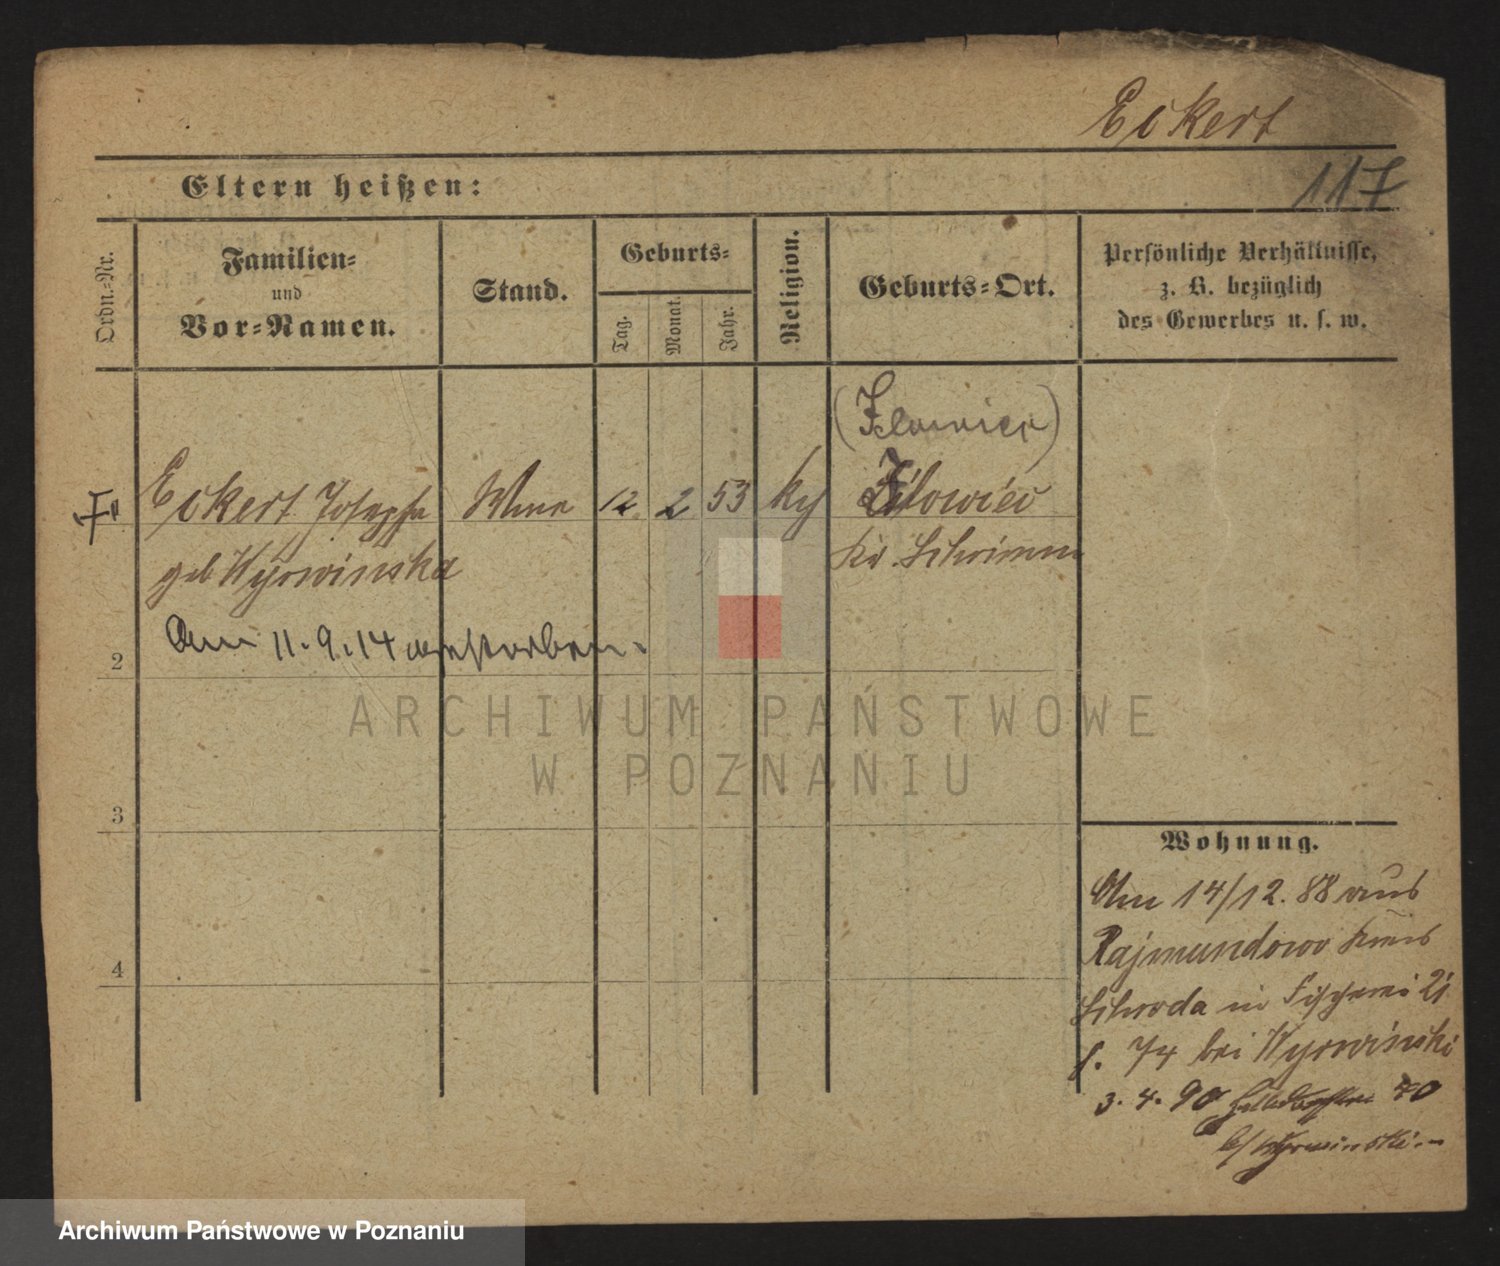 Eckert
117
Eltern heißen:
Ordn.-Nr.
Familien-
und
Vor-Namen.
Stand.
Geburts-
Tag.
Monat.
Jahr.
Religion.
Geburts-Ort.
Persönliche Verhältnisse,
z. B. bezüglich
des Gewerbes u. s. w.
Eckert Josepha Wwe 12 2 53 kh Iłowiec
geb Wyrwińska Kr. Schrimm
Am 11.9.14 verstorben.
2
3
4
Wohnung.
Am 14/12.88 aus
Rajmundowo Kreis
Schroda in Fischerei 21
bei Wyrwiński
3.4.90 40
b/ Wyrwinski.
ARCHIWUM PAŃSTWOWE
W POZNANIU
Archiwum Państwowe w Poznaniu